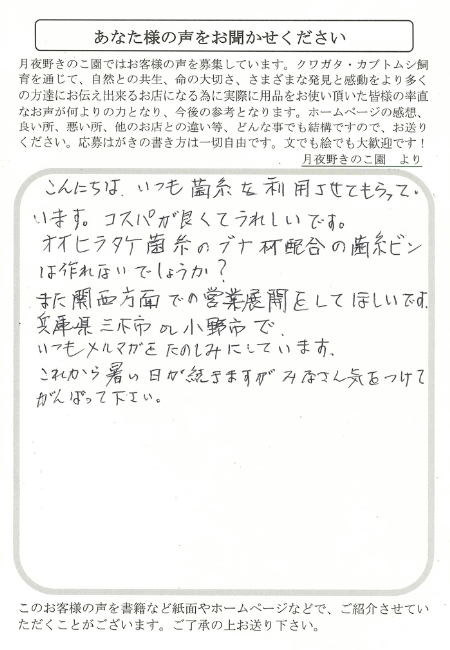 あなた様の声をお聞かせください
月夜野きのこ園ではお客様の声を募集しています。クワガタ・カブトムシ飼
育を通じて、自然との共生、命の大切さ、さまざまな発見と感動をより多く
の方達にお伝え出来るお店になる為に実際に用品をお使い頂いた皆様の率直
なお声が何よりの力となり、今後の参考となります。ホームページの感想、
良い所、悪い所、他のお店との違い等、どんな事でも結構ですので、お送り
ください。応募はがきの書き方は一切自由です。文でも絵でも大歓迎です！
月夜野きのこ園　より
こんにちは、いつも菌糸を利用させてもらって
います。コスパが良くてうれしいです。
オオヒラタケ菌糸のブナ材配合の菌糸ビン
は作れないでしょうか？
また関西方面での営業展開をしてほしいです。
兵庫県三木市or小野市で、
いつもメルマガをたのしみにしています、
これから暑い日が続きますがみなさん気をつけて
がんばって下さい。
このお客様の声を書籍など紙面やホームページなどで、ご紹介させてい
ただくことがございます。ご了承の上お送り下さい。